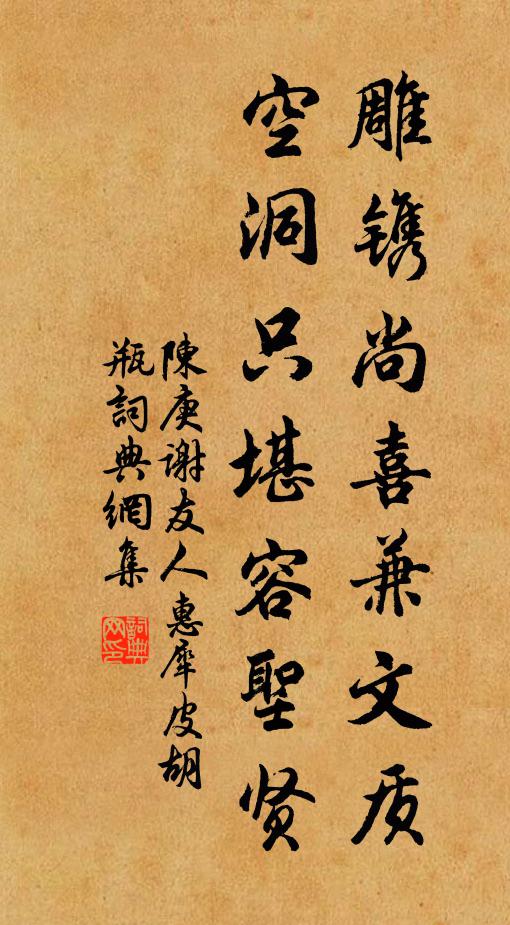 雕镌尚喜兼文质
空洞只堪容聖贤
陳庚谢友人惠犀皮胡
瓶詞典網集
詞典網印